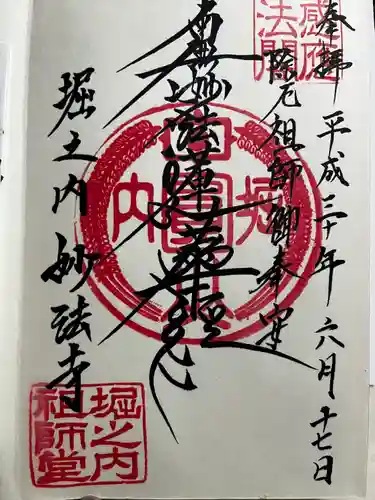 奉拝 平成三十年六月十七日
除厄祖師御奉安
南無妙法蓮華経
堀之内妙法寺
感応
法閣
堀 内
堀之内
祖師堂